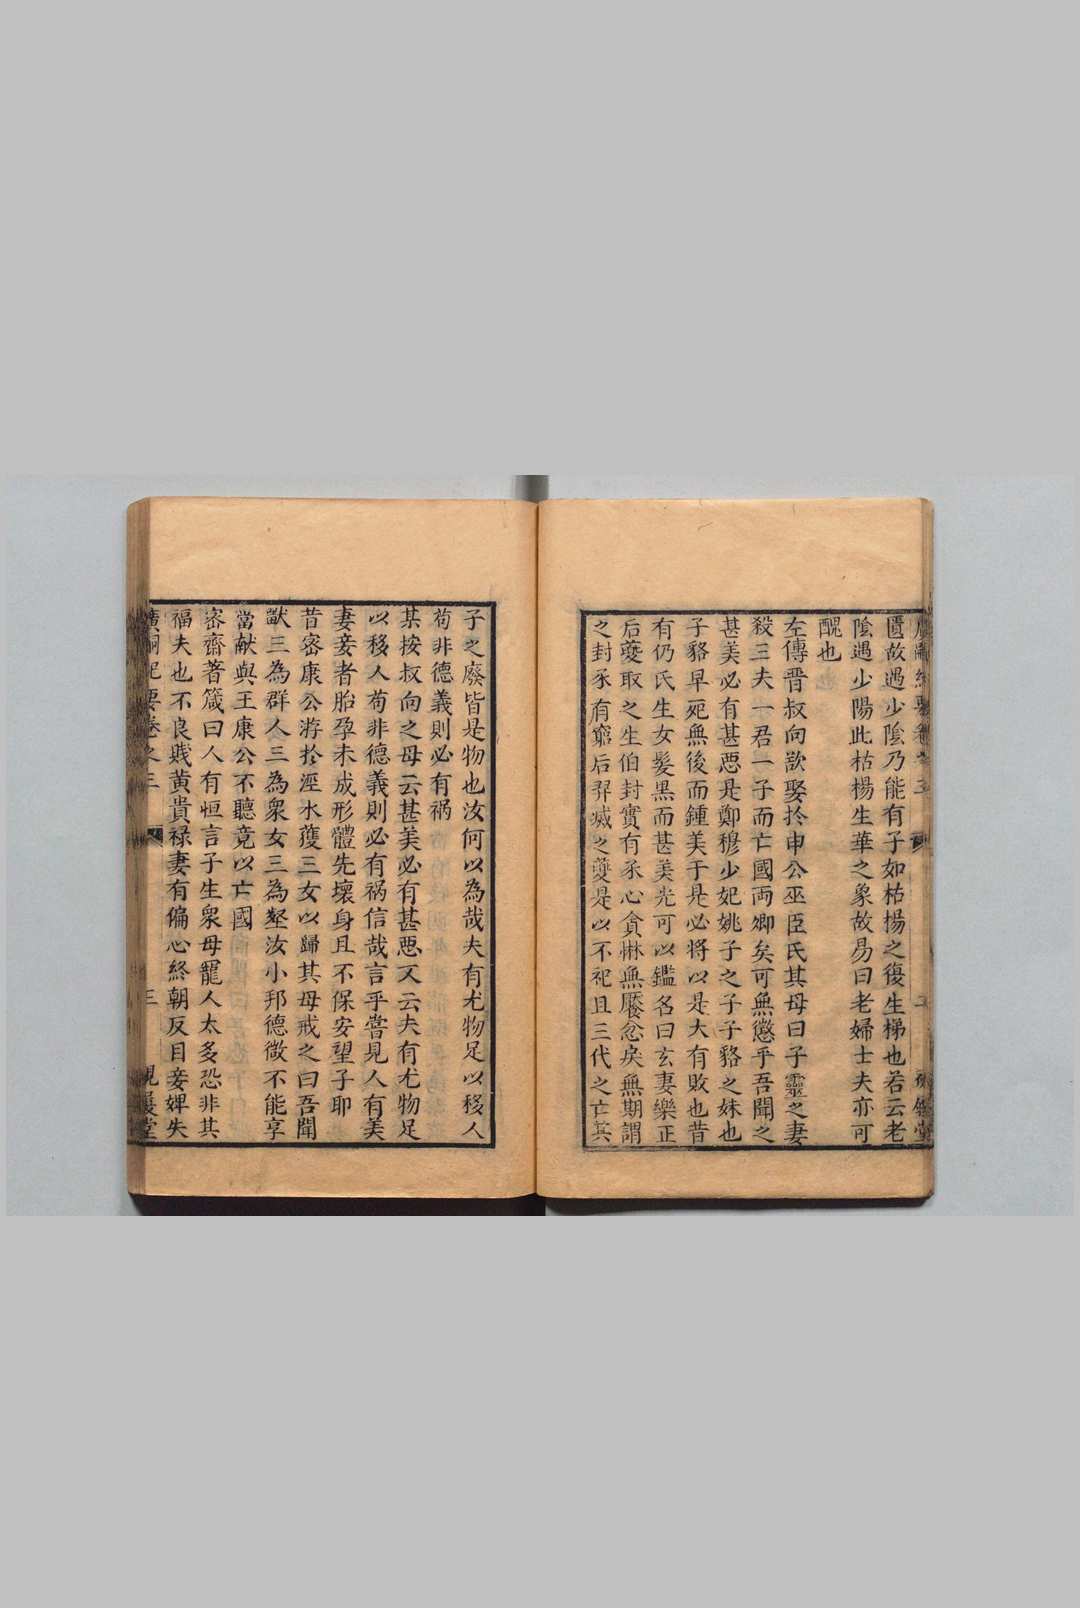 匱故遇少陰乃能有子如枯揚之復生梯也若云老
陰遇少陽此枯楊生華之象故易曰老婦士夫亦可
醜也
左傳晋叔向欲娶扵申公巫臣氏其母曰子靈之妻
殺三夫一君一子而亡國兩卿矣可無懲乎吾聞之
甚美必有甚惡是鄭穆少妃姚子之子子貉之妹也
子貉早死無後而鍾美于是必將以是大有敗也昔
有仍氏生女髮黑而甚美光可以鑑名曰玄妻樂正
后夔取之生伯封實有豕心貪惏無饜忿戾無期謂
之封豕有窮后羿滅之夔是以不祀且三代之亡其
子之廢皆是物也汝何以為哉夫有尤物足以移人
苟非德義則必有禍
某按叔向之母云甚美必有甚惡又云夫有尤物足
以移人苟非德義則必有禍信哉言乎嘗見人有美
妻妾者胎孕未成形體先壞身且不保安望子耶
昔密康公游扵涇水獲三女以歸其母戒之曰吾聞
獸三為群人三為衆女三為粲汝小邦德微不能享
當献與王康公不聽竟以亡國
密齋著箴曰人有恒言子生衆母寵人太多恐非其
福夫也不良賎黄貴禄妻有偏心終朝反目妾婢失
廣嗣紀要卷之三 三